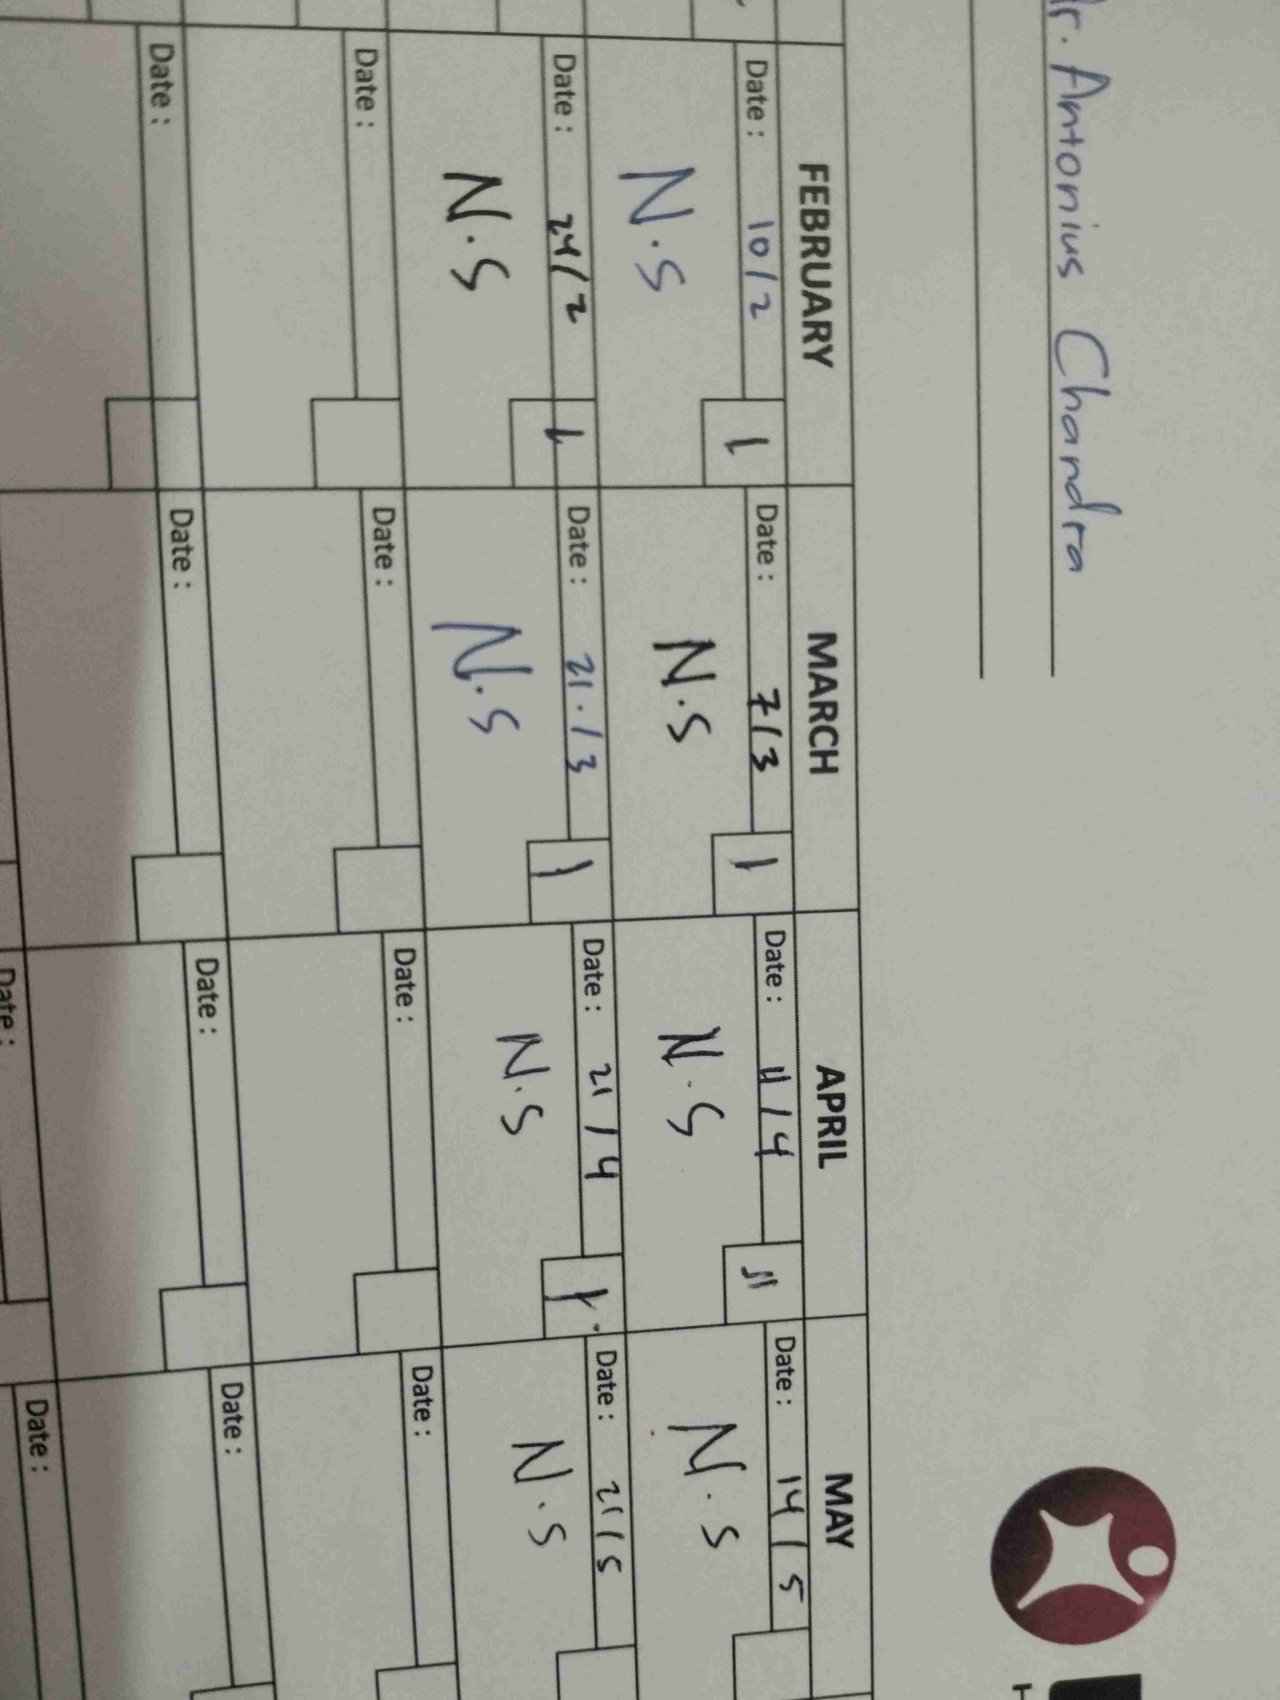 Dr. Antonius Chandra
FEBRUARY MARCH APRIL MAY
Date : 10/2 Date : 7/3 Date : 11/4 Date : 14/5
1 1 11
N.S N.S N.S N.S
Date : 24/2 Date : 21./3 Date : 21/4 Date : 21/5
1 1 1
N.S N.S N.S N.S
Date : Date : Date : Date :
Date : Date : Date : Date :
Date : Date :